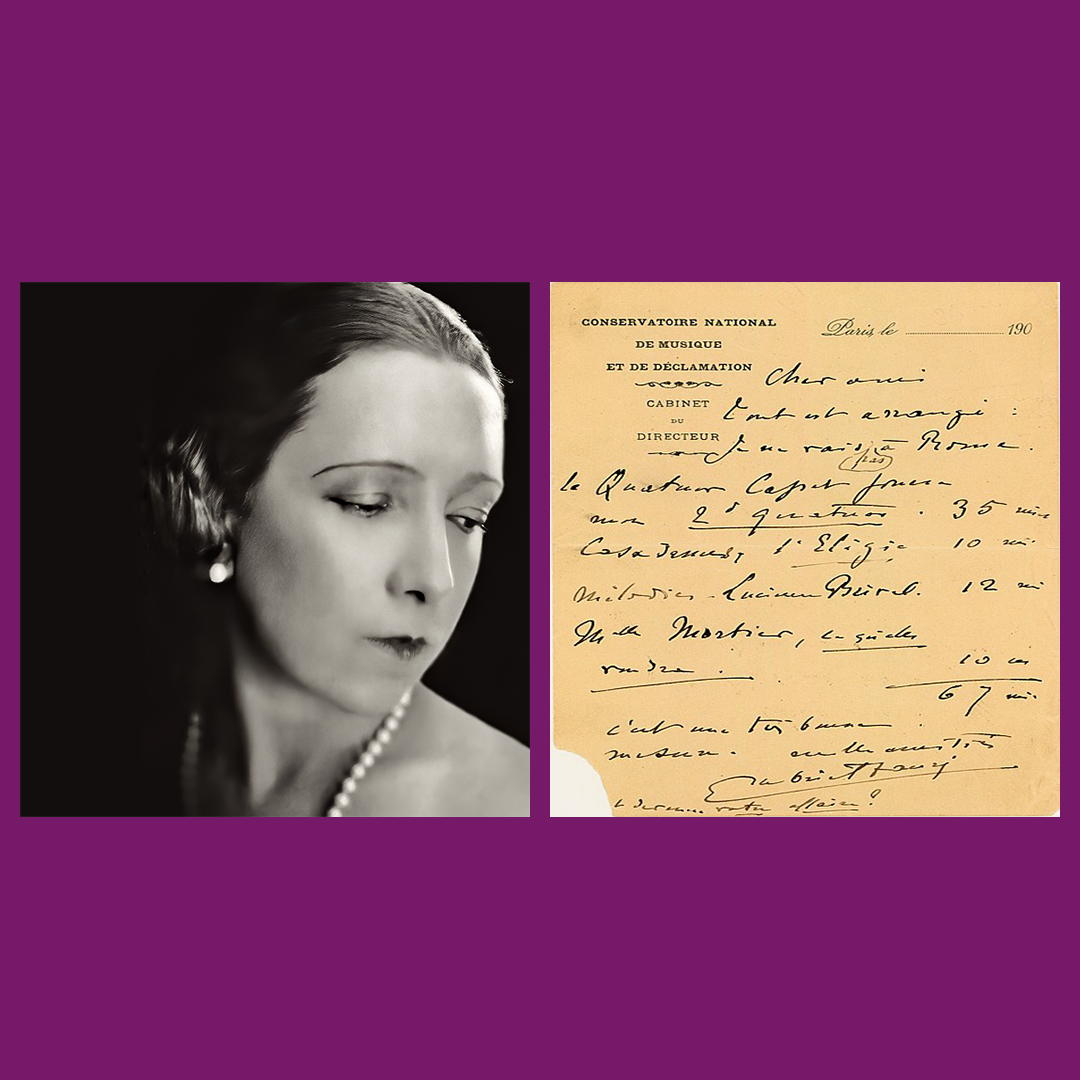 CONSERVATOIRE NATIONAL
DE MUSIQUE
ET DE DÉCLAMATION
CABINET
DU
DIRECTEUR
Paris, le 190
Cher ami
Tout est arrangé :
Je ne vais pas à Rome.
le Quatuor Capet jouera
mon 2d quatuor . 35 min
Casadesus, l'Elégie 10 mi
mélodies - Lucienne Bréval. 12 mi
Melle Mortier, ce qu'elle
voudra . 10 m
67 mi.
c'est une très bonne
mesure.
Gabriel Fauré
votre affaire ?